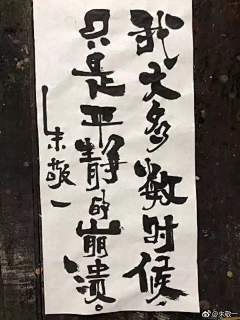 我大多数时候，
只是平静的崩溃。
朱敬一
@朱敬一